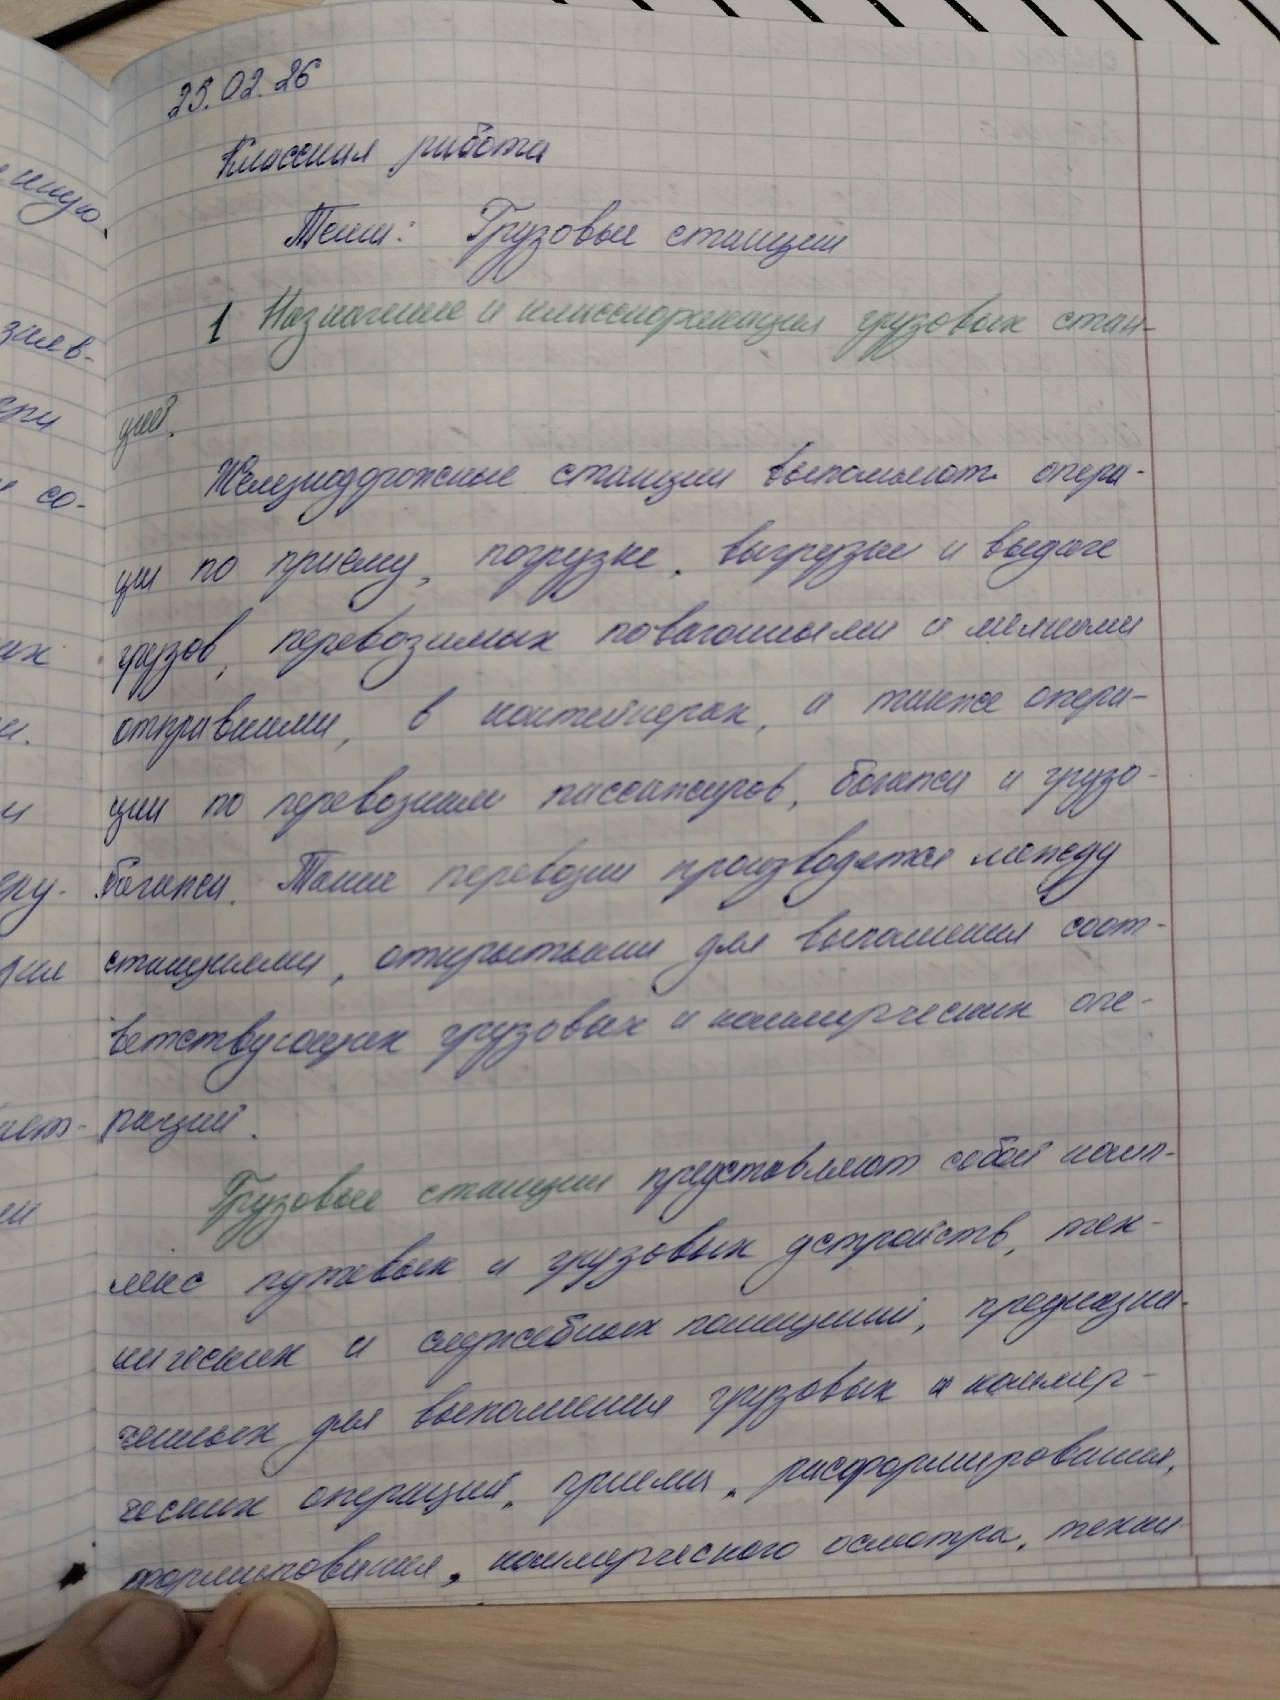 25.02.26
Классная работа
Тема: Грузовые станции
1 Назначение и классификация грузовых стан-
ций.
Железнодорожные станции выполняют опера-
ции по приему, погрузке, выгрузке и выдаче
грузов, перевозимых повагонными и мелкими
отправками, в контейнерах, а также опера-
ции по перевозкам пассажиров, багажа и грузо-
багажа. Такие перевозки производятся между
станциями, открытыми для выполнения соот-
ветствующих грузовых и коммерческих опе-
раций.
Грузовые станции представляют собой комп-
лекс путевых и грузовых устройств, тех-
нических и служебных помещений, предназна-
ченных для выполнения грузовых и коммер-
ческих операций, приема, расформирования,
формирования, коммерческого осмотра, техни